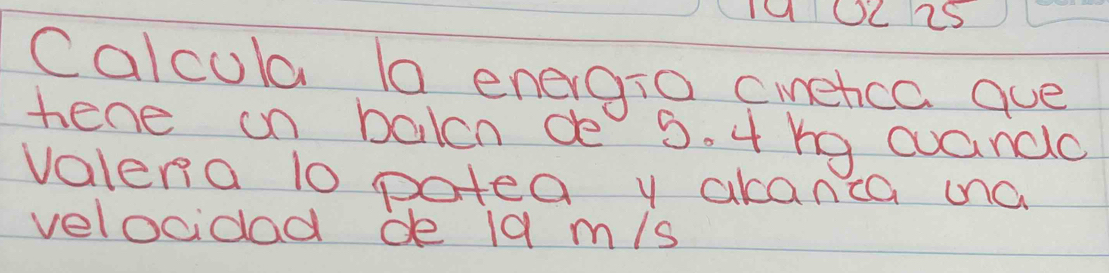 19 02 25
Calcula la energia cinetica que
tiene un balon de 5.4 kg cuando
Valeria lo patea y alcanza una
velocidad de 19 m/s